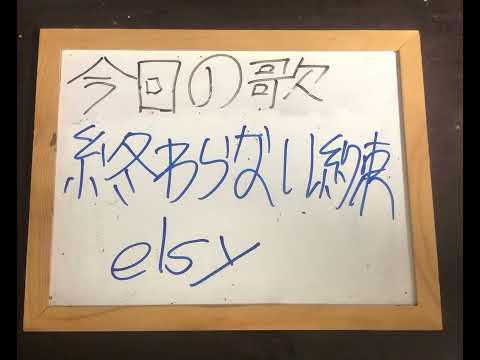 今回の歌
終わらない練
elsy